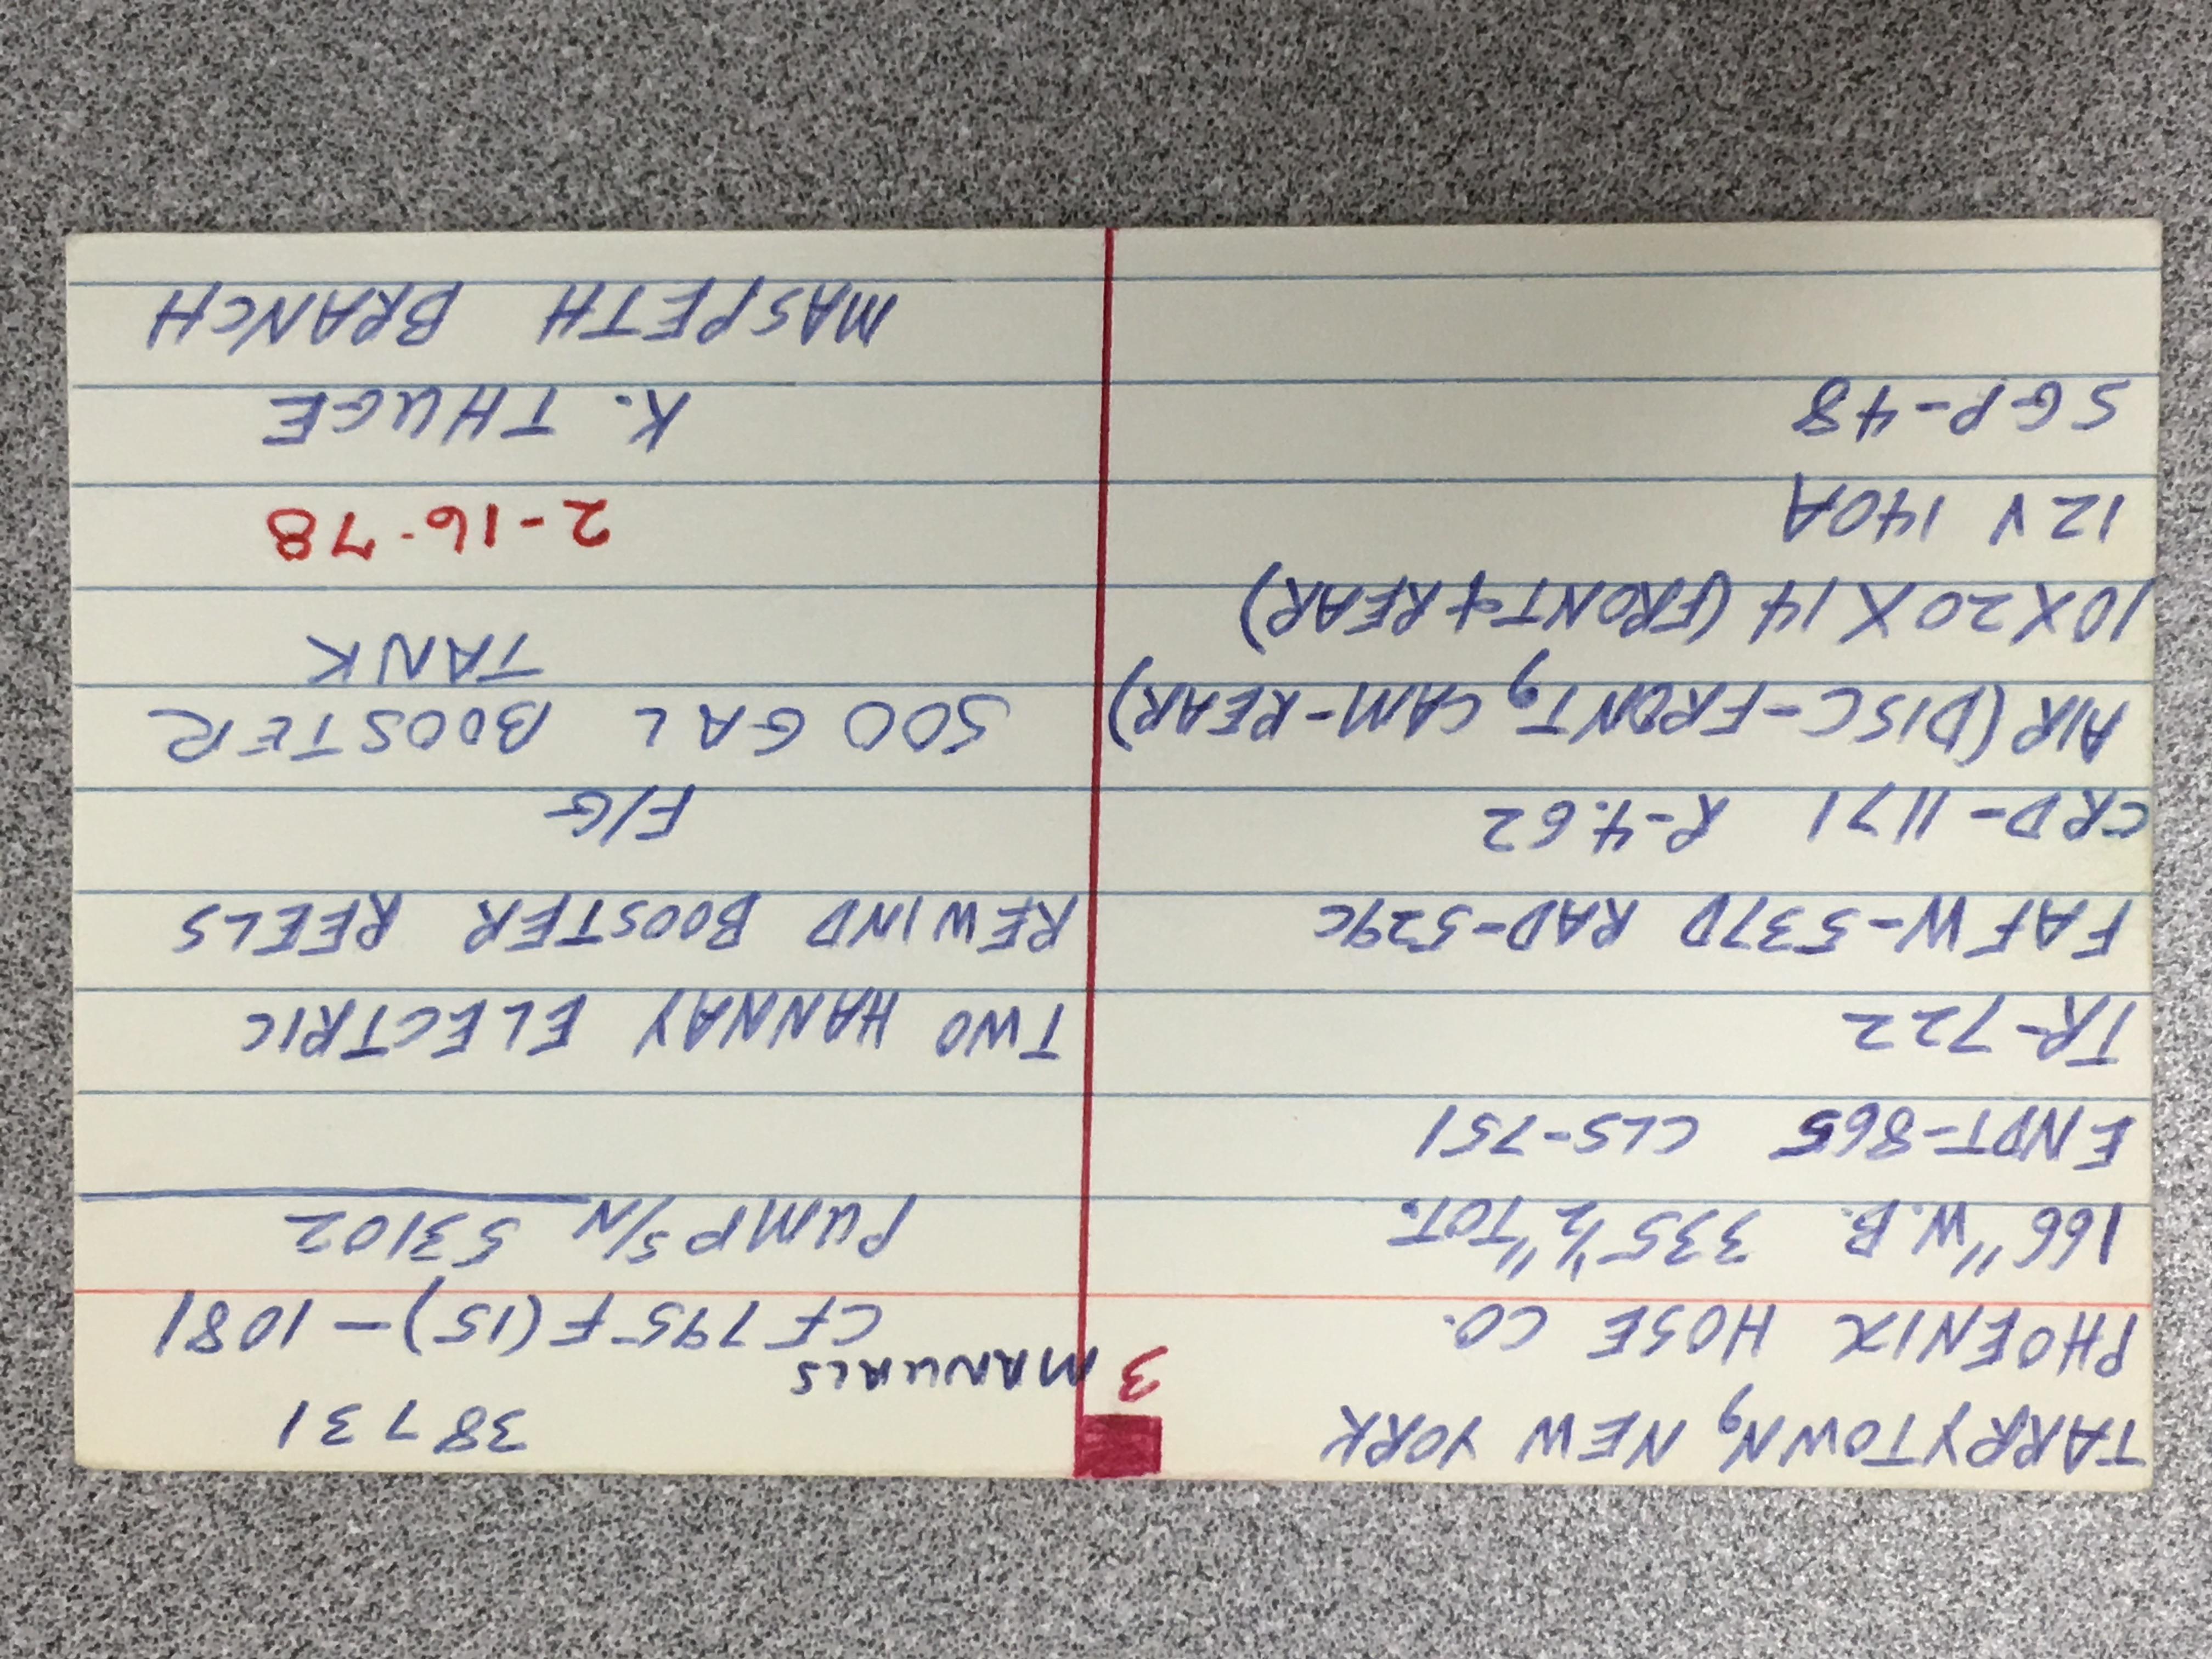 TARRYTOWN, NEW YORK
PHOENIX HOSE CO.
166" W.B. 335 1/2" TOT.
ENDT-865 CLS-751
TR-722
FAFW-537D RAD-529C
CRD-1171 R-4.62
AIR (DISC-FRONT, CAM-REAR)
10X20X14 (FRONT & REAR)
12V 140A
SGP-48
3 MANUALS
38731
CF795F(15)-1081
PUMP S/N 53102
TWO HANNAY ELECTRIC
REWIND BOOSTER REELS
F/G
500 GAL BOOSTER
TANK
2-16-78
K. THUGE
MASPETH BRANCH